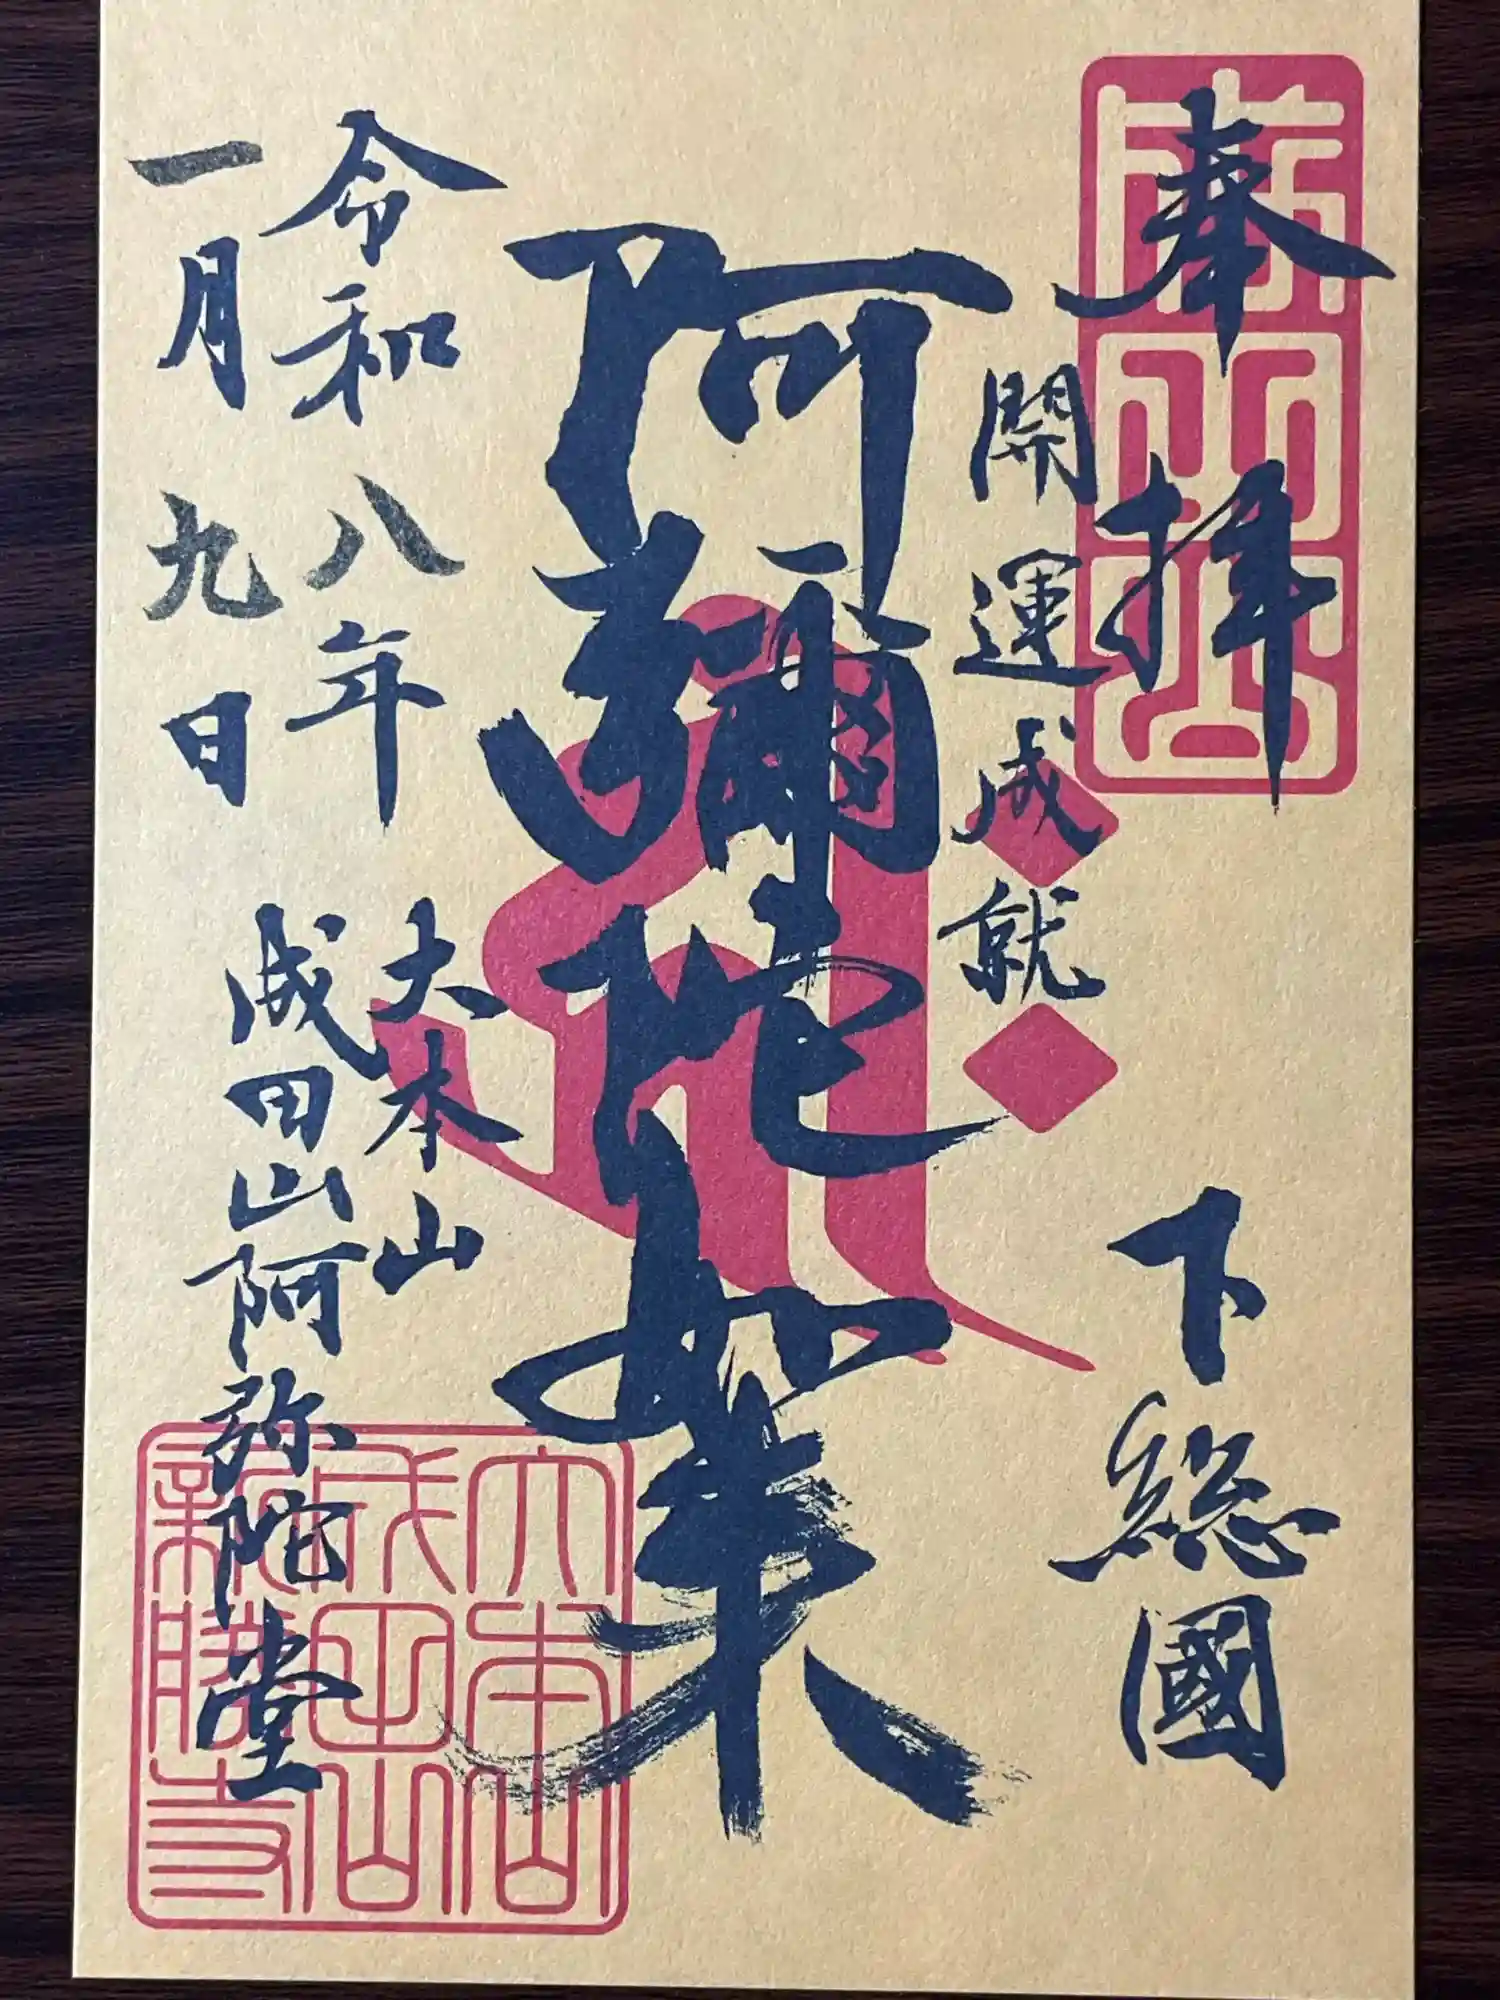 奉拝
下総國
開運成就
阿彌陀如来
令和八年
一月九日
大本山
成田山阿弥陀堂
大本山
成田山
新勝寺